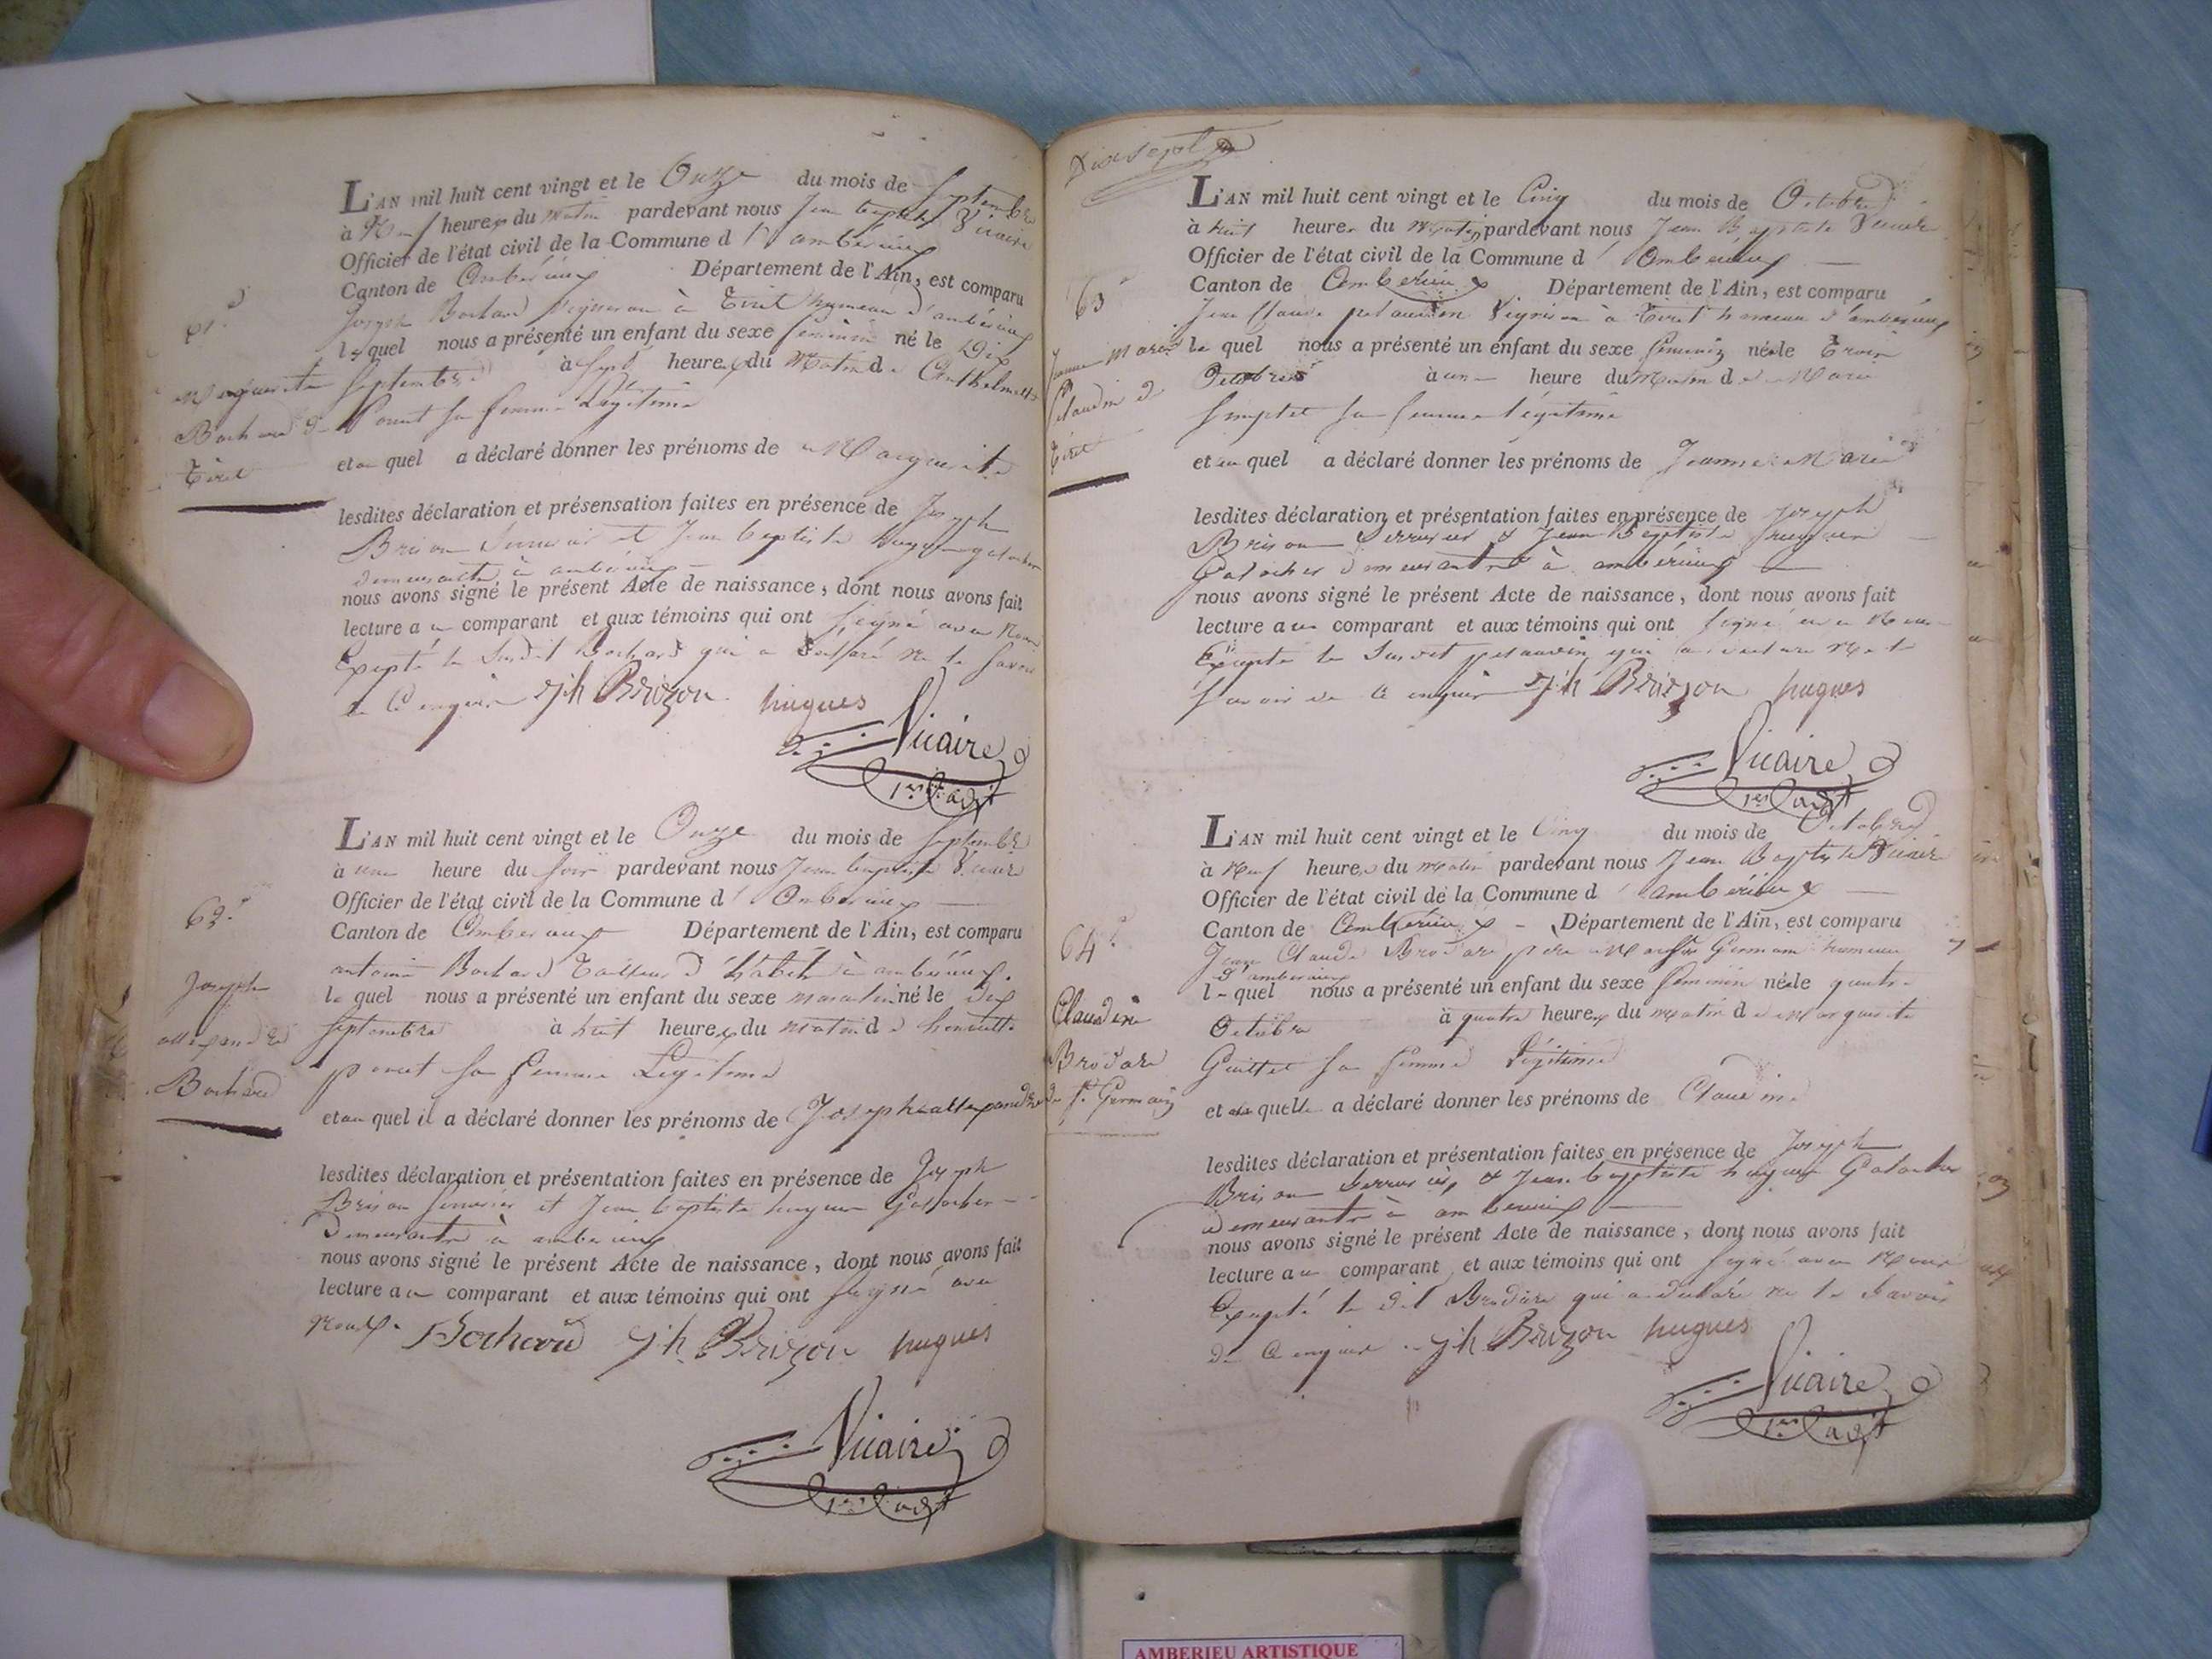 61.e
Marguerite
Bochard d
Tiret
L'AN mil huit cent vingt et le Onze du mois de Septembre
à Neuf heures du matin pardevant nous Jean baptiste Vicaire
Officier de l'état civil de la Commune d' ambérieux
Canton de Ambérieux Département de l'Ain, est comparu
Joseph Bochard Vigneron à Tiret hameau d'ambérieux
lequel nous a présenté un enfant du sexe feminin né le Dix
Septembre à Sept heures du Matin de Anthelmette
sa femme Légitime
et au quel a déclaré donner les prénoms de Marguerite
lesdites déclaration et présensation faites en présence de Joseph
Brison Serrurier et Jean baptiste hugues galocher
demeurants à ambérieux
nous avons signé le présent Acte de naissance, dont nous avons fait
lecture au comparant et aux témoins qui ont signé avec Nous
Excepté le Susdit Bochard qui a déclaré ne le Savoir
de Ce enquis jh Brizon hugues
Vicaire
1er adjt
62.e
Joseph
allexandre
Bochard
L'AN mil huit cent vingt et le Onze du mois de Septembre
à une heure du soir pardevant nous Jean baptiste Vicaire
Officier de l'état civil de la Commune d' Ambérieux
Canton de Amberieux Département de l'Ain, est comparu
antoine Bochard Tailleur d'habit à ambérieux.
le quel nous a présenté un enfant du sexe masculin né le dix
Septembre à huit heures du matin de henriette
ponct sa femme Légitime
et au quel il a déclaré donner les prénoms de Joseph allexandre
lesdites déclaration et présentation faites en présence de Joseph
Brison Serrurier et Jean baptiste hugues Galocher
Demeurants à amberieux
nous avons signé le présent Acte de naissance, dont nous avons fait
lecture au comparant et aux témoins qui ont signé avec
Nous. Bochard jh Brizon hugues
Vicaire
1er adjt
Dix Sept
63
Jeanne Marie
de
Tiret
L'AN mil huit cent vingt et le Cinq du mois de Octobre
à huit heures du Matin pardevant nous Jean Baptiste Vicaire
Officier de l'état civil de la Commune d' Ambérieux
Canton de Ambérieux Département de l'Ain, est comparu
Jean Claude petaudin Vigneron à Tiret hameau d'ambérieux
le quel nous a présenté un enfant du sexe feminin née le Trois
Octobre à une heure du Matin de Marie
sa femme légitime
et au quel a déclaré donner les prénoms de Jeanne Marie
lesdites déclaration et présentation faites en présence de Joseph
Brison Serrurier & Jean Baptiste hugues
Galocher demeurants à ambérieux
nous avons signé le présent Acte de naissance, dont nous avons fait
lecture au comparant et aux témoins qui ont signé avec Nous
Excepté le Susdit petaudin qui a déclaré Ne le
Savoir de Ce enquis jh Brizon hugues
Vicaire
1er adjt
64.e
Claudine
Brodare
de St. Germain
L'AN mil huit cent vingt et le Cinq du mois de Octobre
à Neuf heures du matin pardevant nous Jean Baptiste Vicaire
Officier de l'état civil de la Commune d' ambérieux
Canton de Ambérieux Département de l'Ain, est comparu
Jean Claude Brodare St Germain hameau
d'amberieux
lequel nous a présenté un enfant du sexe feminin née le quatre
Octobre à quatre heures du matin de Marguerite
Guittet sa femme Légitime
et a quelle a déclaré donner les prénoms de Claudine
lesdites déclaration et présentation faites en présence de Joseph
Brison Serrurier, & Jean baptiste hugues Galocher
demeurants à amberieux
nous avons signé le présent Acte de naissance, dont nous avons fait
lecture au comparant et aux témoins qui ont signé avec Nous
Excepté le dit Brodare qui a déclaré ne le Savoir
de Ce enquis jh Brizon hugues
Vicaire
1er adjt
AMBERIEU ARTISTIQUE